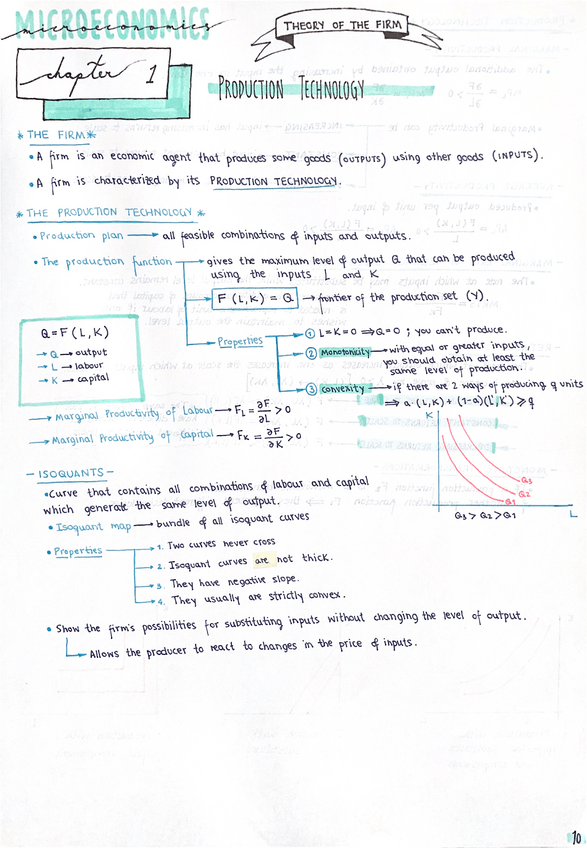 MICROECONOMICS
microeconomics
THEORY OF THE FIRM
chapter 1
PRODUCTION TECHNOLOGY
* THE FIRM *
• A firm is an economic agent that produces some goods (OUTPUTS) using other goods (INPUTS).
• A firm is characterized by its PRODUCTION TECHNOLOGY.
* THE PRODUCTION TECHNOLOGY *
• Production plan → all feasible combinations of inputs and outputs.
• The production function → gives the maximum level of output Q that can be produced
using the inputs L and K
→ F(L,K) = Q → frontier of the production set (Y).
→ Properties → ① L=K=0 ⇒ Q=0 ; you can't produce.
② Monotonicity → with equal or greater inputs,
you should obtain at least the
same level of production.
③ convexity → if there are 2 ways of producing q units
⇒ a·(L,K) + (1-a)(L',K') ≥ q
Q=F(L,K)
→ Q → output
→ L → labour
→ K → capital
→ Marginal Productivity of Labour → FL = ∂F/∂L > 0
→ Marginal Productivity of Capital → FK = ∂F/∂K > 0
K
Q3
Q2
Q1
L
Q3 > Q2 > Q1
- ISOQUANTS -
• Curve that contains all combinations of labour and capital
which generate the same level of output.
• Isoquant map → bundle of all isoquant curves
• Properties → 1. Two curves never cross
→ 2. Isoquant curves are not thick.
→ 3. They have negative slope.
→ 4. They usually are strictly convex.
• Show the firm's possibilities for substituting inputs without changing the level of output.
→ Allows the producer to react to changes in the price of inputs.
10